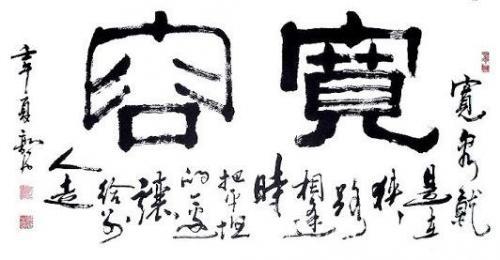 寬容
寬容就
是在
狹
路
相逢
時
把平坦
的邊
讓
給別
人走